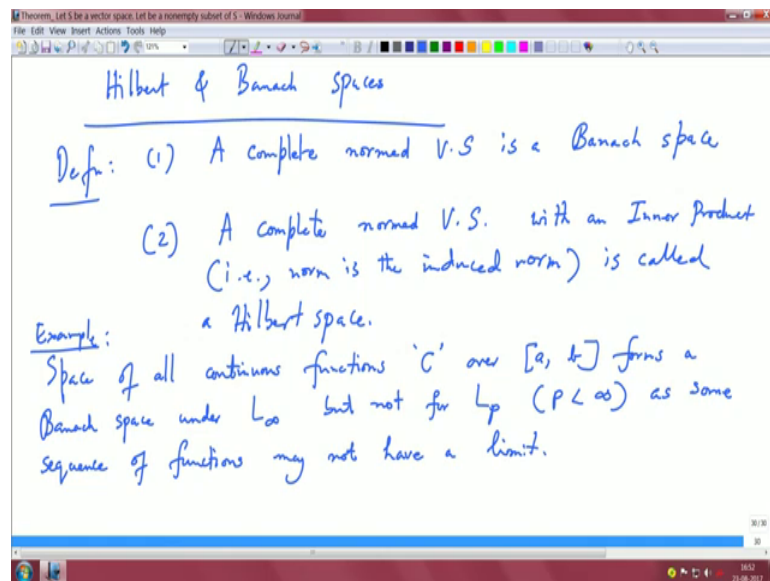 Theorem_ Let S be a vector space. Let be a nonempty subset of S - Windows Journal
File Edit View Insert Actions Tools Help
121%
Hilbert & Banach Spaces
Defn: (1) A complete normed V.S is a Banach space
(2) A complete normed V.S. with an Inner Product
(i.e., norm is the induced norm) is called
a Hilbert space.
Example:
Space of all continuous functions 'C' over [a, b] forms a
Banach space under L∞ but not for Lp (P < ∞) as some
sequence of functions may not have a limit.
30/30
30
16:52
23-08-2017